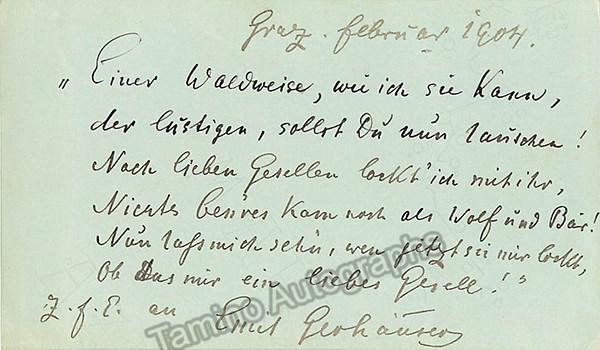 Graz. Februar 1904.
„Einer Waldweise, wie ich sie kann,
der lustigen, sollst Du nun lauschen!
Nach lieben Gesellen lockt' ich mit ihr,
Nichts bess'res kam noch als Wolf und Bär!
Nun lass mich sehn, wen jetzt sie mir lockt,
Ob Das mir ein liebes Gesell!"
Z. f. E. an Emil Gerhäuser
Tamino Autographs